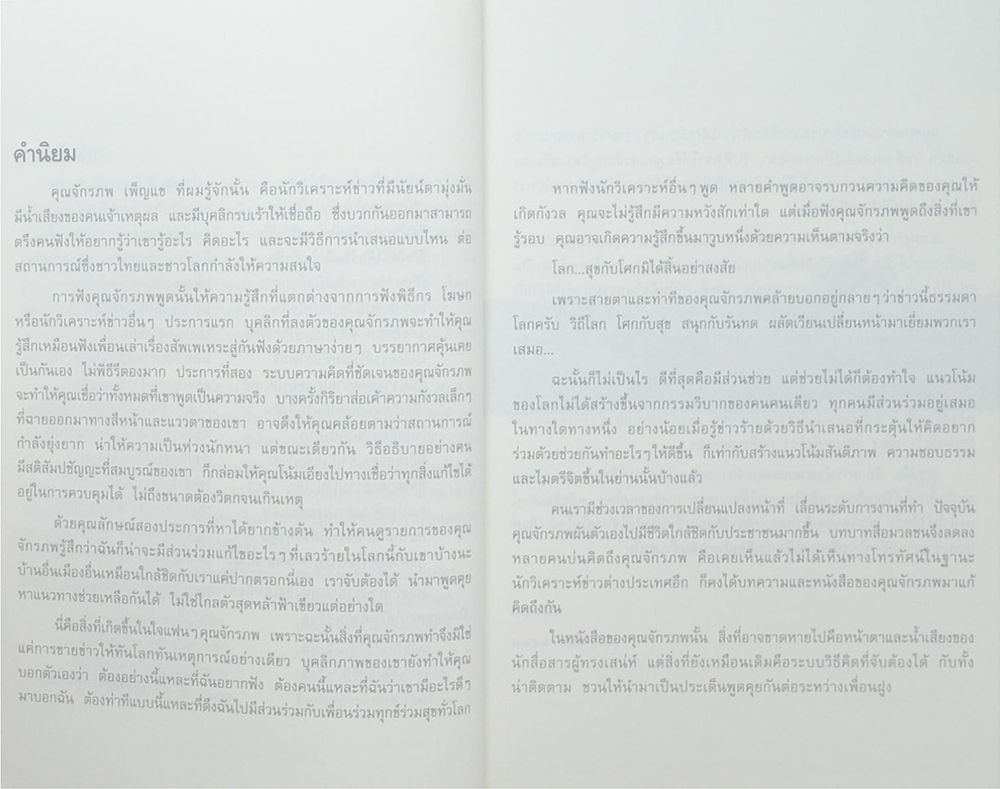 คำนิยม
คุณจักรภพ เพ็ญแข ที่ผมรู้จักนั้น คือนักวิเคราะห์ข่าวที่มีนัยน์ตามุ่งมั่น
มีน้ำเสียงของคนเจ้าเหตุผล และมีบุคลิกรบเร้าให้เชื่อถือ ซึ่งบวกกันออกมาสามารถ
ตรึงคนฟังให้อยากรู้ว่าเขารู้อะไร คิดอะไร และจะมีวิธีการนำเสนอแบบไหน ต่อ
สถานการณ์ซึ่งชาวไทยและชาวโลกกำลังให้ความสนใจ
การฟังคุณจักรภพพูดนั้นให้ความรู้สึกที่แตกต่างจากการฟังพิธีกร โฆษก
หรือนักวิเคราะห์ข่าวอื่นๆ ประการแรก บุคลิกที่ลงตัวของคุณจักรภพจะทำให้คุณ
รู้สึกเหมือนฟังเพื่อนเล่าเรื่องสัพเพเหระสู่กันฟังด้วยภาษาง่ายๆ บรรยากาศคุ้นเคย
เป็นกันเอง ไม่พิธีรีตองมาก ประการที่สอง ระบบความคิดที่ชัดเจนของคุณจักรภพ
จะทำให้คุณเชื่อว่าทั้งหมดที่เขาพูดเป็นความจริง บางครั้งกิริยาส่อเค้าความกังวลเล็กๆ
ที่ฉายออกมาทางสีหน้าและแววตาของเขา อาจดึงให้คุณคล้อยตามว่าสถานการณ์
กำลังยุ่งยาก น่าให้ความเป็นห่วงนักหนา แต่ขณะเดียวกัน วิธีอธิบายอย่างคน
มีสติสัมปชัญญะที่สมบูรณ์ของเขา ก็กล่อมให้คุณโน้มเอียงไปทางเชื่อว่าทุกสิ่งแก้ไขได้
อยู่ในการควบคุมได้ ไม่ถึงขนาดต้องวิตกจนเกินเหตุ
ด้วยคุณลักษณ์สองประการที่หาได้ยากข้างต้น ทำให้คนดูรายการของคุณ
จักรภพรู้สึกว่าฉันก็น่าจะมีส่วนร่วมแก้ไขอะไรๆ ที่เลวร้ายในโลกนี้กับเขาบ้างนะ
บ้านอื่นเมืองอื่นเหมือนใกล้ชิดกับเราแค่ปากตรอกนี่เอง เราจับต้องได้ นำมาพูดคุย
หาแนวทางช่วยเหลือกันได้ ไม่ใช่ไกลตัวสุดหล้าฟ้าเขียวแต่อย่างใด
นี่คือสิ่งที่เกิดขึ้นในใจแฟนๆ คุณจักรภพ เพราะฉะนั้นสิ่งที่คุณจักรภพทำจึงมิใช่
แค่การขายข่าวให้ทันโลกทันเหตุการณ์อย่างเดียว บุคลิกภาพของเขายังทำให้คุณ
บอกตัวเองว่า ต้องอย่างนี้แหละที่ฉันอยากฟัง ต้องคนนี้แหละที่ฉันว่าเขามีอะไรดีๆ
มาบอกฉัน ต้องท่าทีแบบนี้แหละที่ดึงฉันไปมีส่วนร่วมกับเพื่อนร่วมทุกข์ร่วมสุขทั่วโลก
หากฟังนักวิเคราะห์อื่นๆ พูด หลายคำพูดอาจรบกวนความคิดของคุณให้
เกิดกังวล คุณจะไม่รู้สึกมีความหวังสักเท่าใด แต่เมื่อฟังคุณจักรภพพูดถึงสิ่งที่เขา
รู้รอบ คุณอาจเกิดความรู้สึกขึ้นมาวูบหนึ่งด้วยความเห็นตามจริงว่า
โลก...สุขกับโศกมิได้สิ้นอย่าสงสัย
เพราะสายตาและท่าทีของคุณจักรภพคล้ายบอกอยู่กลายๆ ว่าข่าวนี้ธรรมดา
โลกครับ วิถีโลก โศกกับสุข สนุกกับรันทด ผลัดเวียนเปลี่ยนหน้ามาเยี่ยมพวกเรา
เสมอ...
ฉะนั้นก็ไม่เป็นไร ดีที่สุดคือมีส่วนช่วย แต่ช่วยไม่ได้ก็ต้องทำใจ แนวโน้ม
ของโลกไม่ได้สร้างขึ้นจากกรรมวิบากของคนคนเดียว ทุกคนมีส่วนร่วมอยู่เสมอ
ในทางใดทางหนึ่ง อย่างน้อยเมื่อรู้ข่าวร้ายด้วยวิธีนำเสนอที่กระตุ้นให้คิดอยาก
ร่วมด้วยช่วยกันทำอะไรๆ ให้ดีขึ้น ก็เท่ากับสร้างแนวโน้มสันติภาพ ความชอบธรรม
และไมตรีจิตขึ้นในย่านนั้นบ้างแล้ว
คนเรามีช่วงเวลาของการเปลี่ยนแปลงหน้าที่ เลื่อนระดับการงานที่ทำ ปัจจุบัน
คุณจักรภพผันตัวเองไปมีชีวิตใกล้ชิดกับประชาชนมากขึ้น บทบาทสื่อมวลชนจึงลดลง
หลายคนบ่นคิดถึงคุณจักรภพ คือเคยเห็นแล้วไม่ได้เห็นทางโทรทัศน์ในฐานะ
นักวิเคราะห์ข่าวต่างประเทศอีก ก็คงได้บทความและหนังสือของคุณจักรภพมาแก้
คิดถึงกัน
ในหนังสือของคุณจักรภพนั้น สิ่งที่อาจขาดหายไปคือหน้าตาและน้ำเสียงของ
นักสื่อสารผู้ทรงเสน่ห์ แต่สิ่งที่ยังเหมือนเดิมคือระบบวิธีคิดที่จับต้องได้ กับทั้ง
น่าติดตาม ชวนให้นำมาเป็นประเด็นพูดคุยกันต่อระหว่างเพื่อนฝูง